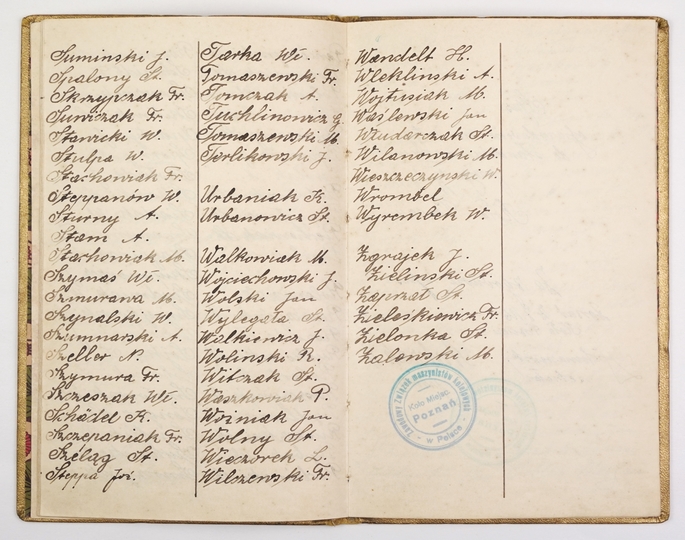 Sumiński J.
Spalony St.
Skrzypczak Fr.
Suwiczak Fr.
Stawicki W.
Stulpa W.
Stachowiak Fr.
Steppanów W.
Sturny A.
Stam A.
Stachowiak M.
Szymaś Wł.
Szmurawa M.
Szynalski W.
Szumnarski A.
Szeller N.
Szymura Fr.
Szczeszak Wł.
Schädel K.
Szczepaniak Fr.
Szeląg St.
Steppa Joź.
Tarka Wł.
Tomaszewski Fr.
Tomczak A.
Tuchlinowicz G.
Tomaszewski M.
Terlikowski J.
Urbaniak K.
Urbanowicz St.
Walkowiak M.
Wojciechowski J.
Wolski Jan
Wylegała St.
Walkiewicz J.
Woliński R.
Witczak St.
Waszkowiak P.
Woźniak Jan
Wolny St.
Wieczorek L.
Wilczewski Fr.
Wandelt H.
Wlekliński A.
Wojtusiak M.
Waślewski Jan
Włudarczak St.
Wilanowski M.
Wieszczeczyński W.
Wrombel
Wyrembek W.
Zgrajek J.
Zieliński St.
Zaprzał St.
Zieleśkiewicz Fr.
Zielonka St.
Zalewski M.
Zawodowy Związek maszynistów kolejowych
Koło Miejsc.
Poznań
w Polsce